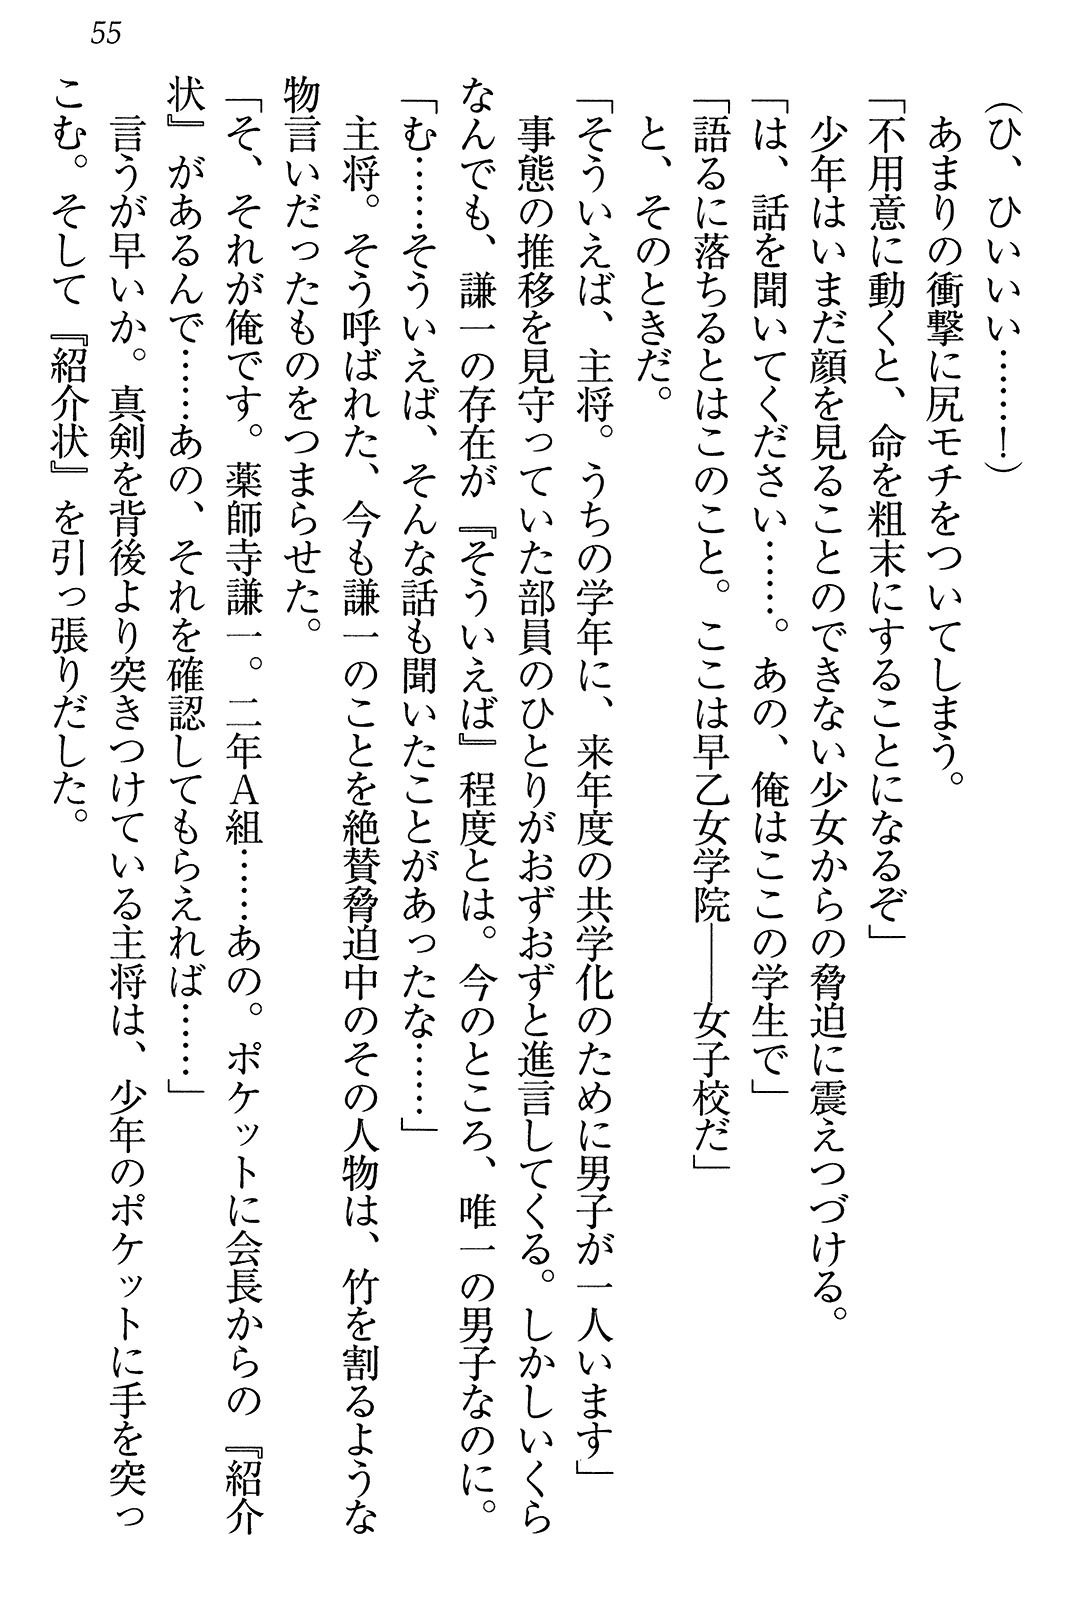 55
（ひ、ひいいい……！）
　あまりの衝撃に尻モチをついてしまう。
「不用意に動くと、命を粗末にすることになるぞ」
　少年はいまだ顔を見ることのできない少女からの脅迫に震えつづける。
「は、話を聞いてください……。あの、俺はここの学生で」
「語るに落ちるとはこのこと。ここは早乙女学院――女子校だ」
　と、そのときだ。
「そういえば、主将。うちの学年に、来年度の共学化のために男子が一人います」
　事態の推移を見守っていた部員のひとりがおずおずと進言してくる。しかしいくら
なんでも、謙一の存在が『そういえば』程度とは。今のところ、唯一の男子なのに。
「む……そういえば、そんな話も聞いたことがあったな……」
　主将。そう呼ばれた、今も謙一のことを絶賛脅迫中のその人物は、竹を割るような
物言いだったものをつまらせた。
「そ、それが俺です。薬師寺謙一。二年Ａ組……あの。ポケットに会長からの『紹介
状』があるんで……あの、それを確認してもらえれば……」
　言うが早いか。真剣を背後より突きつけている主将は、少年のポケットに手を突っ
こむ。そして『紹介状』を引っ張りだした。